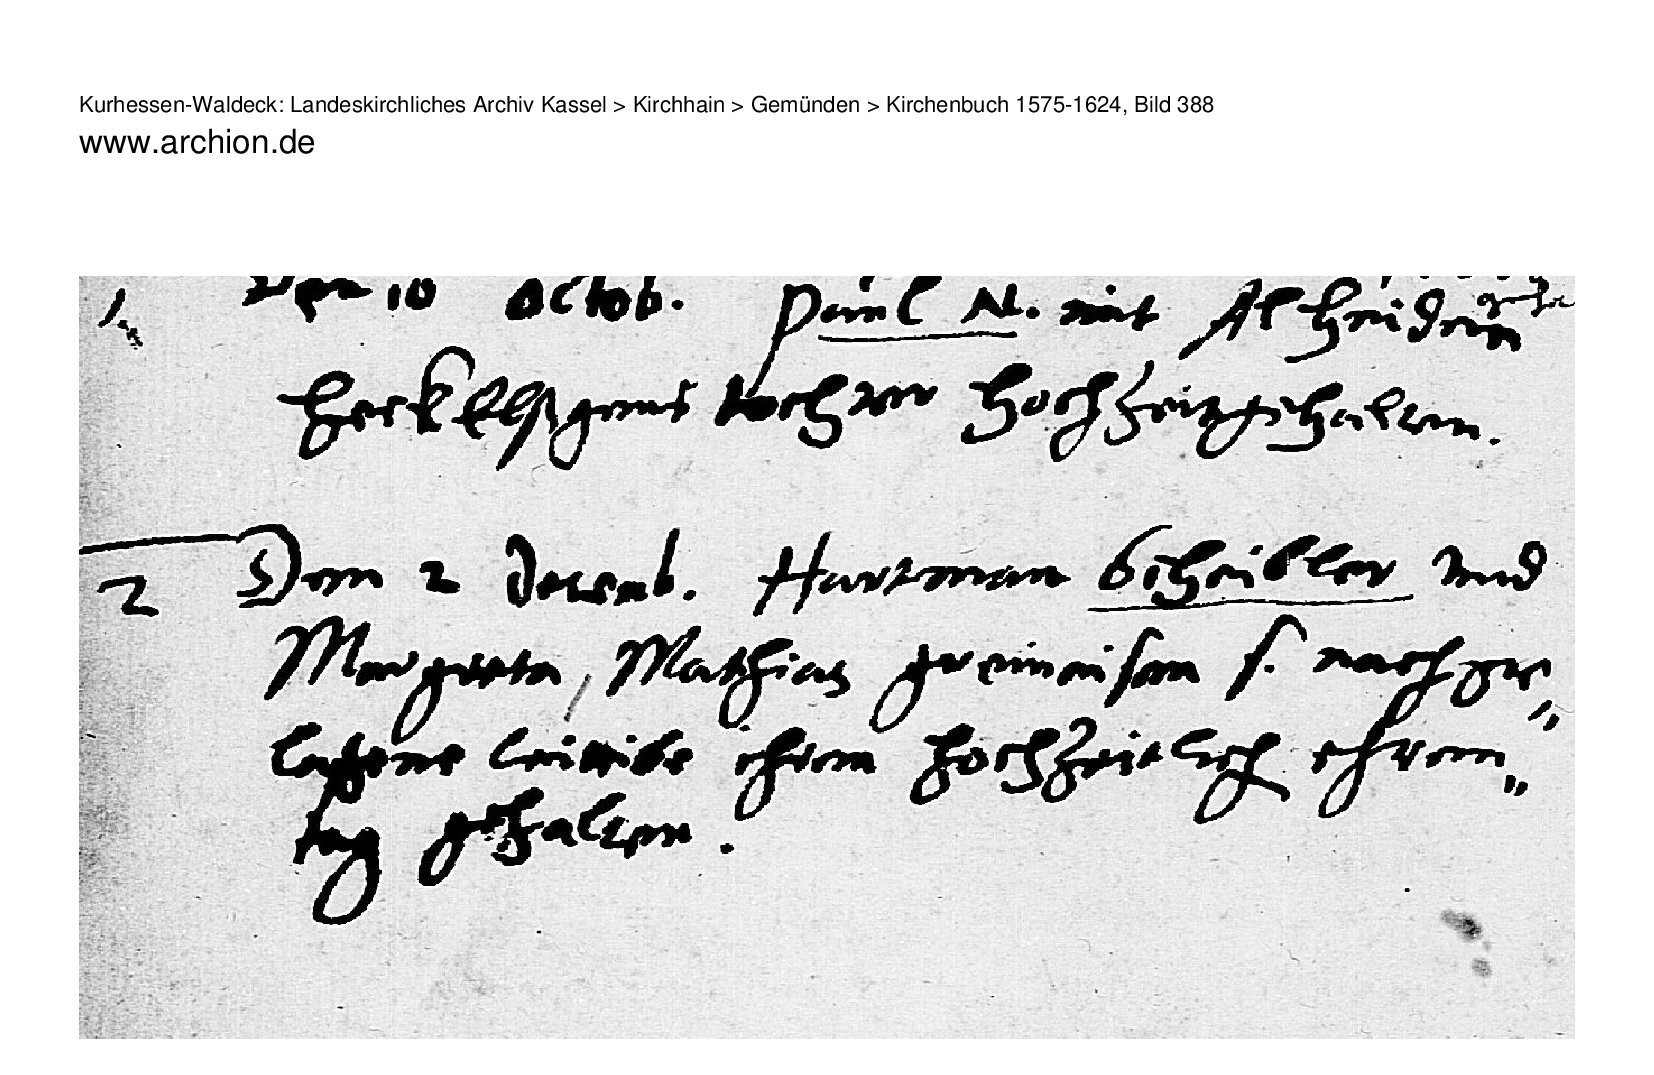 Kurhessen-Waldeck: Landeskirchliches Archiv Kassel > Kirchhain > Gemünden > Kirchenbuch 1575-1624, Bild 388
www.archion.de
Den 10 Octob. Paul N. mit
tochter hochzeit gehalten.
2 Den 2 Decemb. Hartman Scheibler und
Margreta, Mathias s. nachge„
laßene ihren hochzeitlich ehren„
tag gehalten.